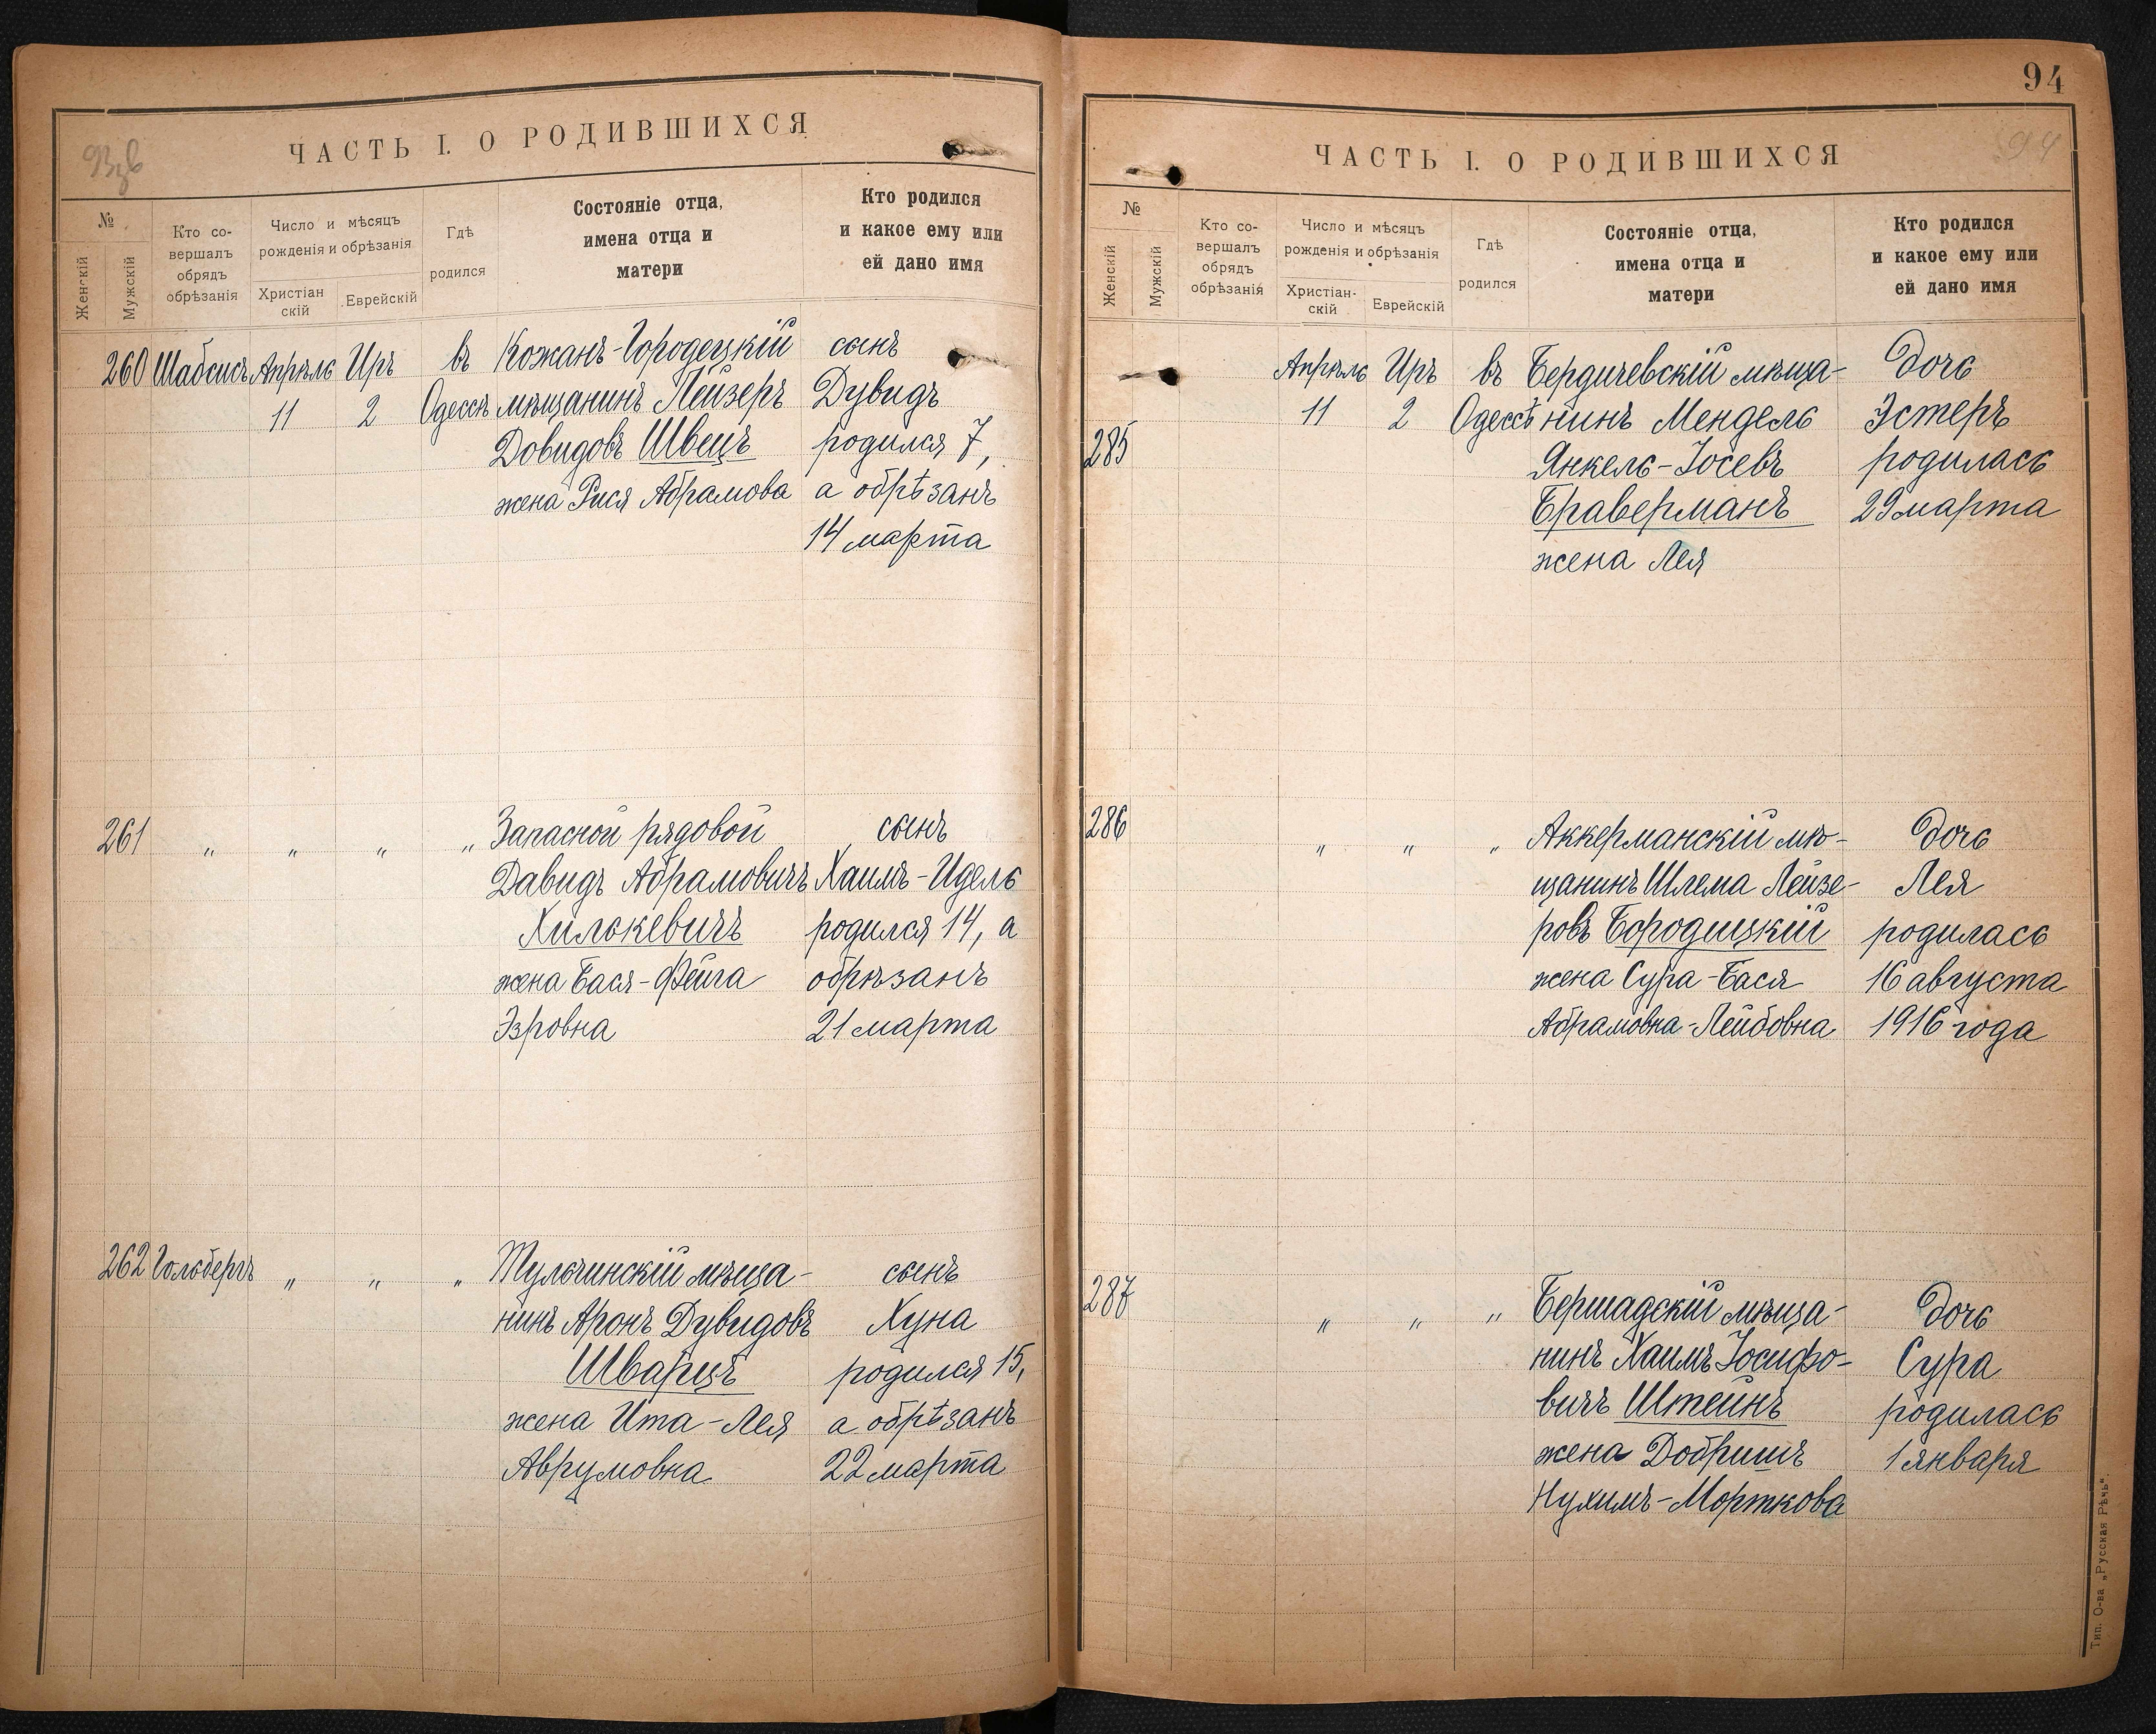 93об
ЧАСТЬ I. О РОДИВШИХСЯ
№
Женскій
Мужскій
Кто со-
вершалъ
обрядъ
обрѣзанія
Число и мѣсяцъ
рожденія и обрѣзанія
Христіан
скій
Еврейскій
Гдѣ
родился
Состояніе отца,
имена отца и
матери
Кто родился
и какое ему или
ей дано имя
260 Шабсисъ Апрѣль Иръ въ Кожанъ-Городецкій сынъ
11 2 Одессѣ мѣщанинъ Лейзеръ Дувидъ
Довидовъ Швецъ родился 7,
жена Рися Абрамова а обрѣзанъ
14 марта
261 „ „ „ „ Запасной рядовой сынъ
Давидъ Абрамовичъ Хаимъ-Идель
Хилькевичъ родился 14, а
жена Бася-Фейга обрѣзанъ
Эзровна 21 марта
262 Гольбергъ „ „ „ Тульчинскій мѣща-
сынъ
нинъ Аронъ Дувидовъ Хуна
Шварцъ родился 15,
жена Ита-Лея а обрѣзанъ
Аврумовна 22 марта
94
94
ЧАСТЬ I. О РОДИВШИХСЯ
№
Женскій
Мужскій
Кто со-
вершалъ
обрядъ
обрѣзанія
Число и мѣсяцъ
рожденія и обрѣзанія
Христіан-
скій
Еврейскій
Гдѣ
родился
Состояніе отца,
имена отца и
матери
Кто родился
и какое ему или
ей дано имя
Апрѣль Иръ въ Бердичевскій мѣща- дочь
11 2 Одессѣ нинъ Мендель Эстеръ
285 Янкель-Іосевъ родилась
Браверманъ 29 марта
жена Лея
286 „ „ „ Аккерманскій мѣ- дочь
щанинъ Шлема Лейзе- Лея
ровъ Бородицкій родилась
жена Сура-Бася 16 августа
Абрамовна-Лейбовна 1916 года
287 „ „ „ Бершадскій мѣща- дочь
нинъ Хаимъ Іосифо- Сура
вичъ Штейнъ родилась
жена Добришъ 1 января
Нухимъ-Морткова
Тип. О-ва „Русская Рѣчь".